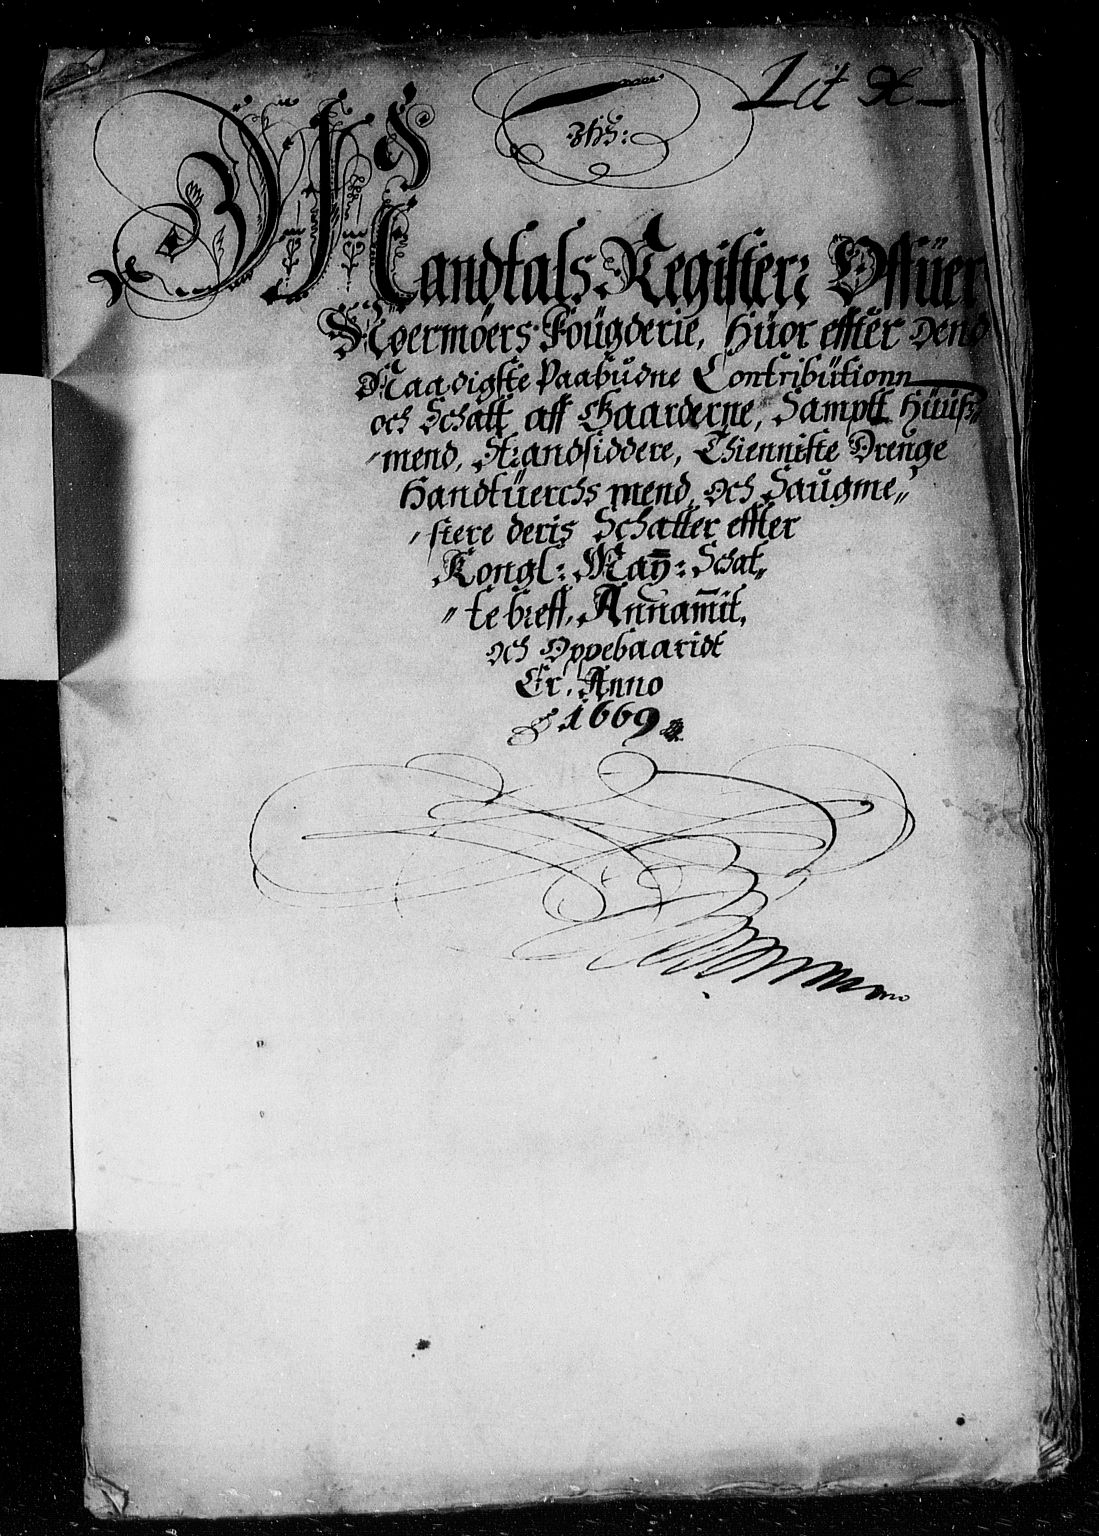 Lit
JHS:
Mandtals Register Offüer
Noermøers Foügderie, Hüor effter Dend
Naadigste Paabüdne Contribütionn
och Schatt aff Gaarderne, Sampt Hüüß
mend, Strandsiddere, Thienniste Drenge
Handtüerchs mend, och Saügme„
„stere deris Schatter effter
Kongl: Maÿ: Schat„
„te breff, Annamit,
och Oppebaaridt
Er, Anno
1669